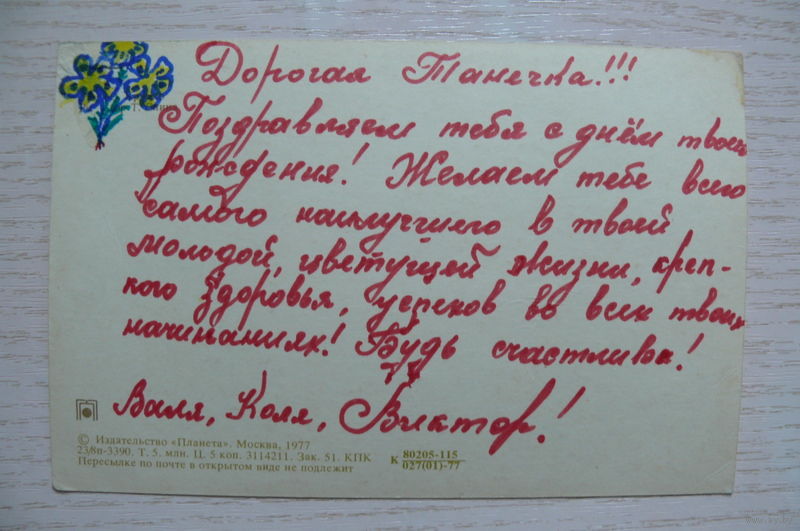 Дорогая Танечка!!!
Поздравляем тебя с днём твоего
рождения! Желаем тебе всего
самого наилучшего в твоей
молодой, цветущей жизни, креп-
кого здоровья, успехов во всех твоих
начинаниях! Будь счастлива!
Валя, Коля, Виктор!
© Издательство «Планета». Москва, 1977
23/8п-3390. Т. 5. млн. Ц. 5 коп. 3114211. Зак. 51. КПК
Пересылке по почте в открытом виде не подлежит
К 80205-115
027(01)-77